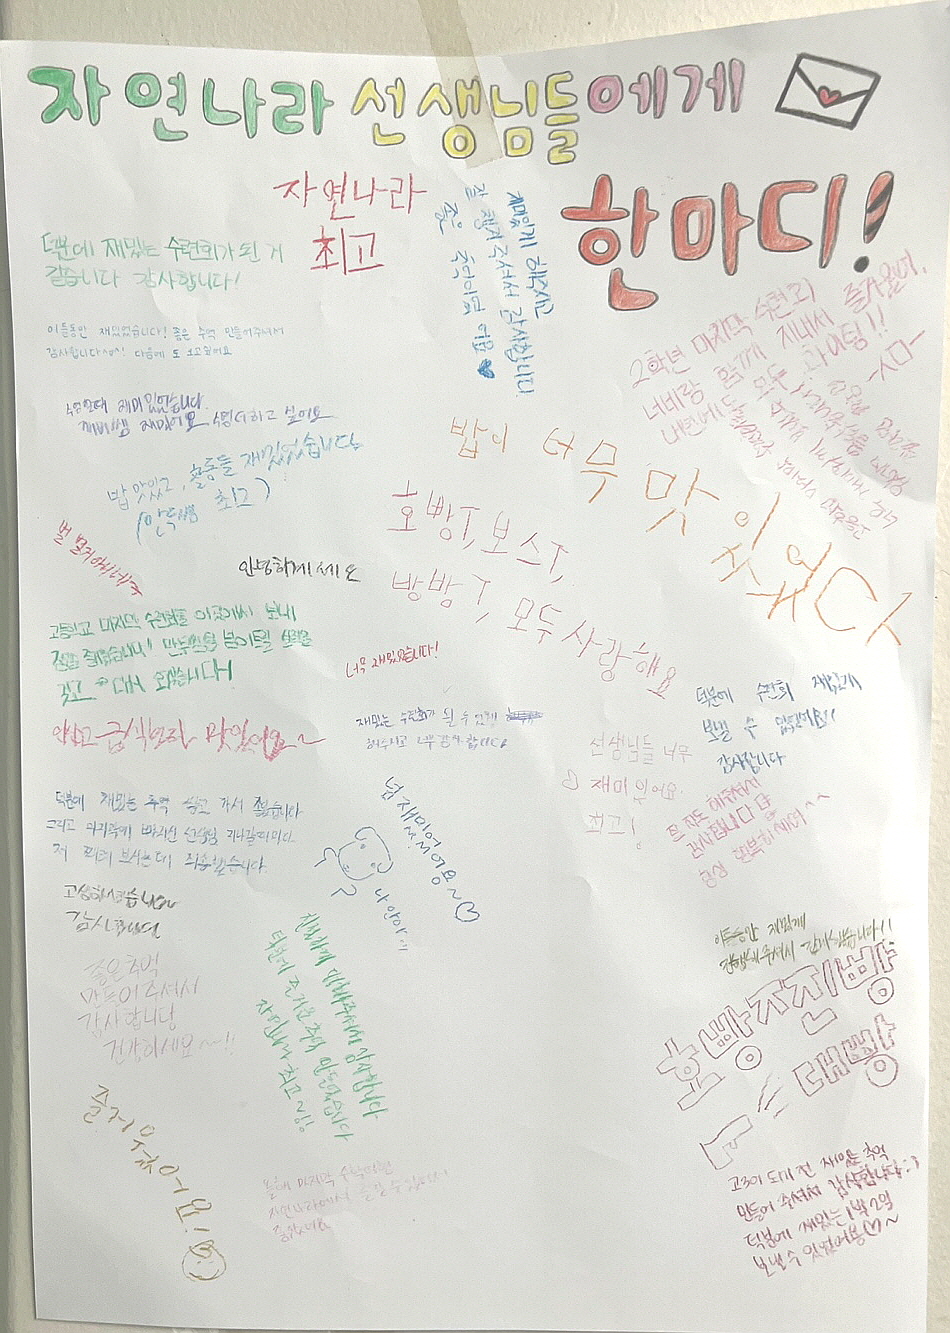 자연나라 선생님들에게
한마디!
자연나라
최고
재미있게 해주시고
잘 챙겨주셔서 감사합니다
좋은 추억이 됐어요♥
덕분에 재밌는 수련회가 된 거
같습니다 감사합니다!
이틀동안 재밌었습니다! 좋은 추억 만들어주셔서
감사합니다^^! 다음에 또 보고싶어요
2학년 마지막 수련회 즐거웠다.
너네랑 함께 지내서
내년에도 모두 화이팅!!
재미있었습니다.
재미있어요 더하고 싶어요
밥 맛있고, 활동들 재밌었습니다
최고)
밥이 너무 맛있었다
호빵T, 보스T,
방방T, 모두 사랑해요
안녕하계세요
고등학교 마지막 수련회를 이곳에서 보내
갖고 왔습니다
너무 재밌었습니다!
급식보다 맛있어요~~
재밌는 수련회가 될 수 있게
해주시고 너무 감사합니다
덕분에 수련회 재밌게
보낼 수 있었어요!!
감사합니다
선생님들 너무
재미있어요.
최고!
잘 지도 해주셔서
감사합니다
항상 행복하세여^^
덕분에 재밌는 추억 쌓고 가서 좋습니다
그리고 마지막에
죄송했습니다.
넘 재미있어용~♡
나 안아
고생하셨습니다
감사합니다
좋은추억
만들어주셔서
감사합니당
건강하세요~!!
친절하게 대해주셔서 감사합니다
덕분에 즐거운 추억 만들었습니다
자연나라 최고~!!
이틀동안 재밌게
진행해주셔서 감사했습니다!!
호빵진빵
대빵
즐거웠어요!
올해 마지막 수학여행
자연나라에서 즐길 수 있어서
좋았어요
고3이 되기 전 재밌는 추억
만들어 주셔서 감사합니다:)
덕분에 재밌는 1박2일
보낼 수 있었어용♡~